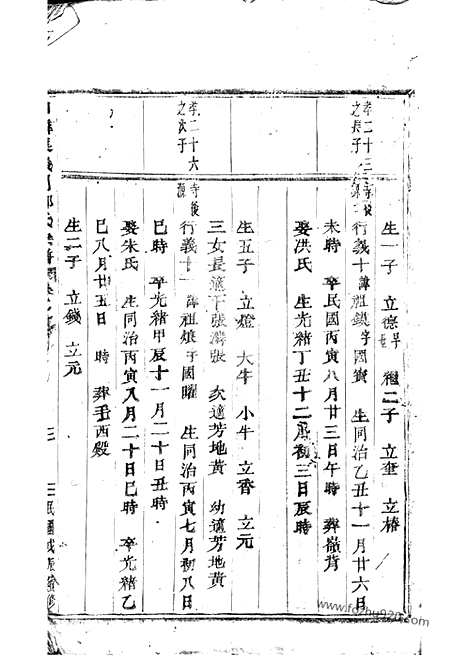 生一子 立德早世 繼二子 立奎 立椿
孝二十三
之長子
行義十 諱祖鎮字國寶 生同治乙丑十一月廿六日
未時 卒民國丙寅八月廿三日午時 葬嶺背
娶洪氏 生光緒丁丑十二月初三日辰時
生五子 立燈 大牛 小牛 立香 立元
三女長適下張濤張 次適芳地黃 幼適芳地黃
孝二十六
之次子
行義十一 諱祖 字國曜 生同治丙寅七月初八日
巳時 卒光緒甲辰十一月二十日丑時
娶朱氏 生同治丙寅八月二十日巳時 卒光緒乙
巳八月廿五日 時 葬 酉殿
生二子 立錢 立元
三
民國戊辰
www.fozhu920.com